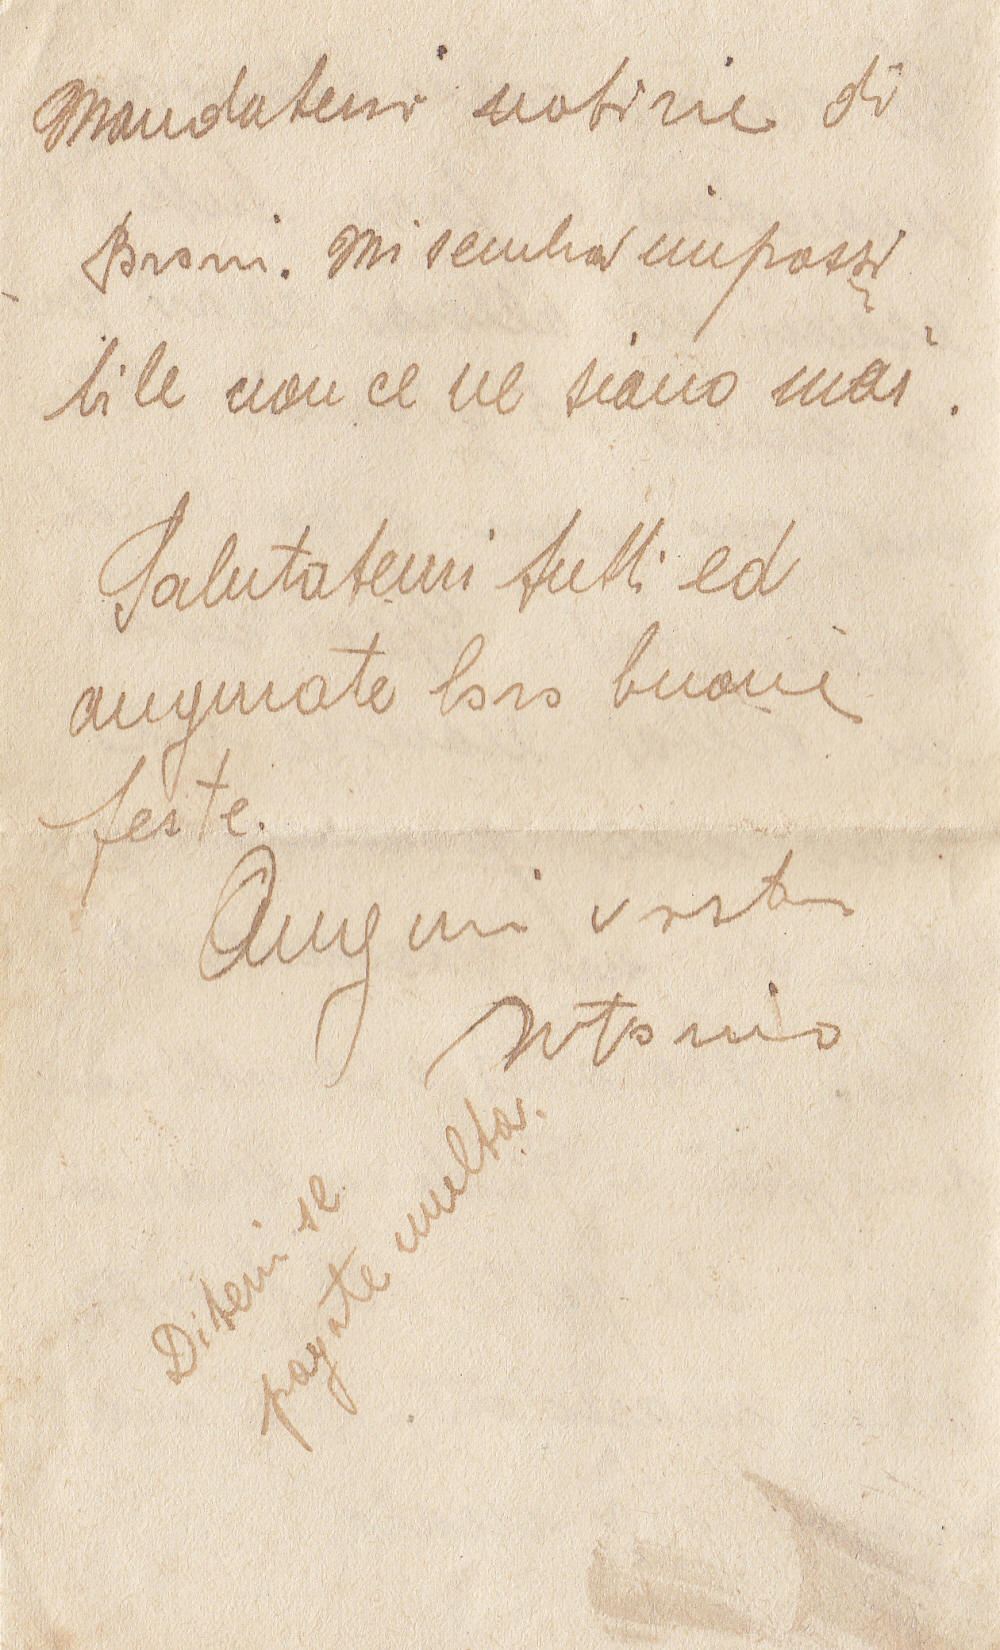 Mandatemi notizie di
Broni. Mi sembra impossi
bile non ce ne siano mai.
Salutatemi tutti ed
augurate loro buone
feste.
Auguri vostro
Antonio
Ditemi se
pagate multa.